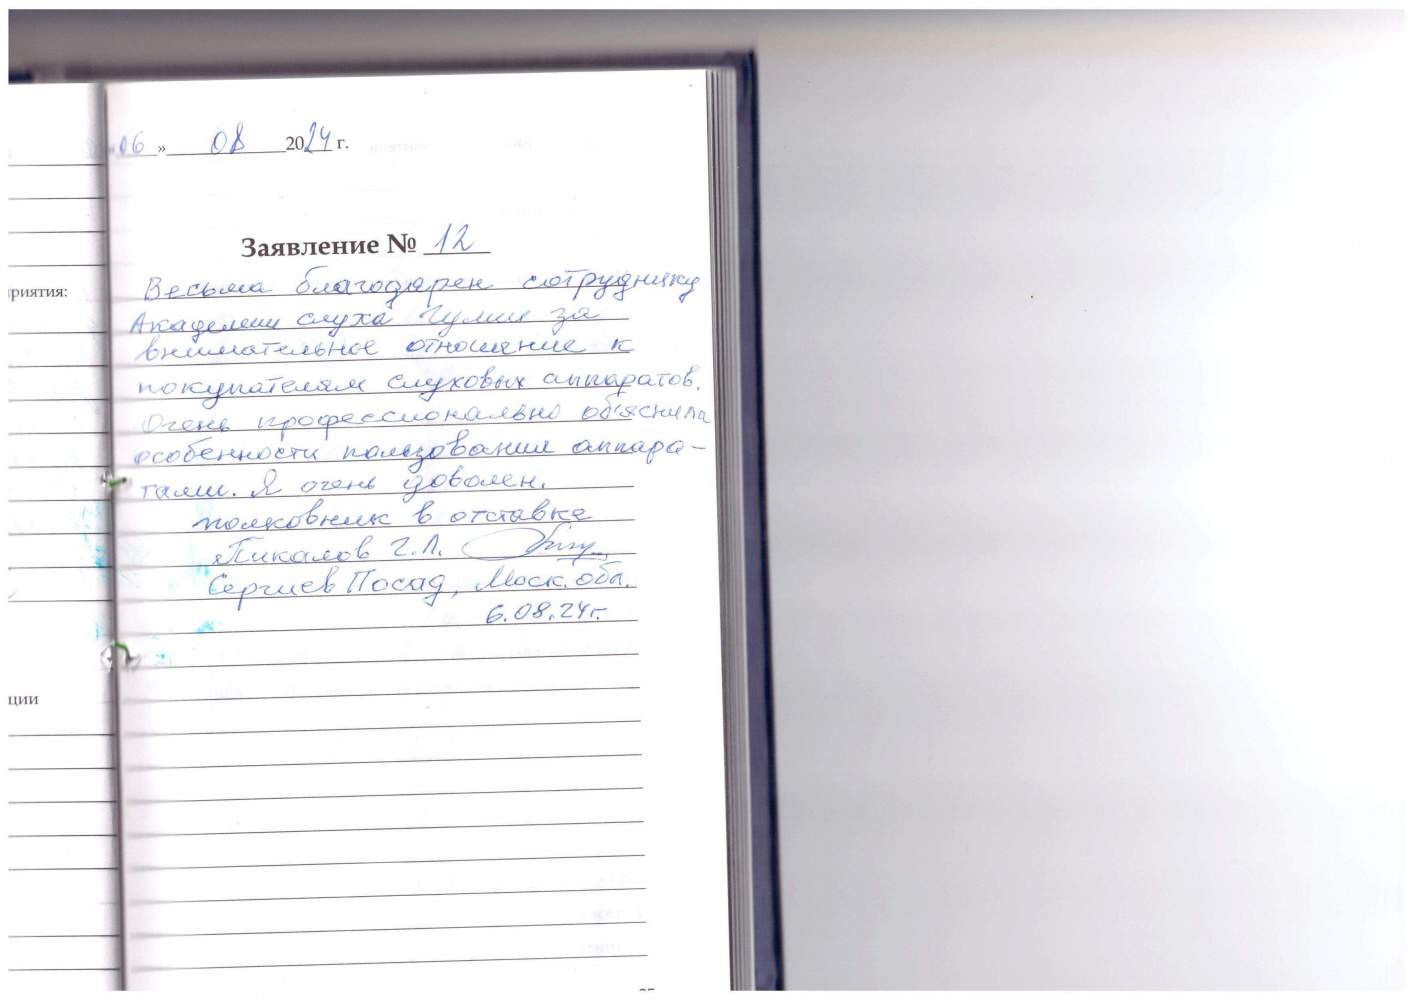 риятия:
ции
«06» 08 2024 г.
Заявление № 12
Весьма благодарен сотруднику
Академии слуха за
внимательное отношение к
покупателям слуховых аппаратов.
Очень профессионально объяснила
особенности пользования аппара-
тами. Я очень доволен.
полковник в отставке
Пикалов Г.Л.
Сергиев Посад, Моск. обл.
6.08.24г.